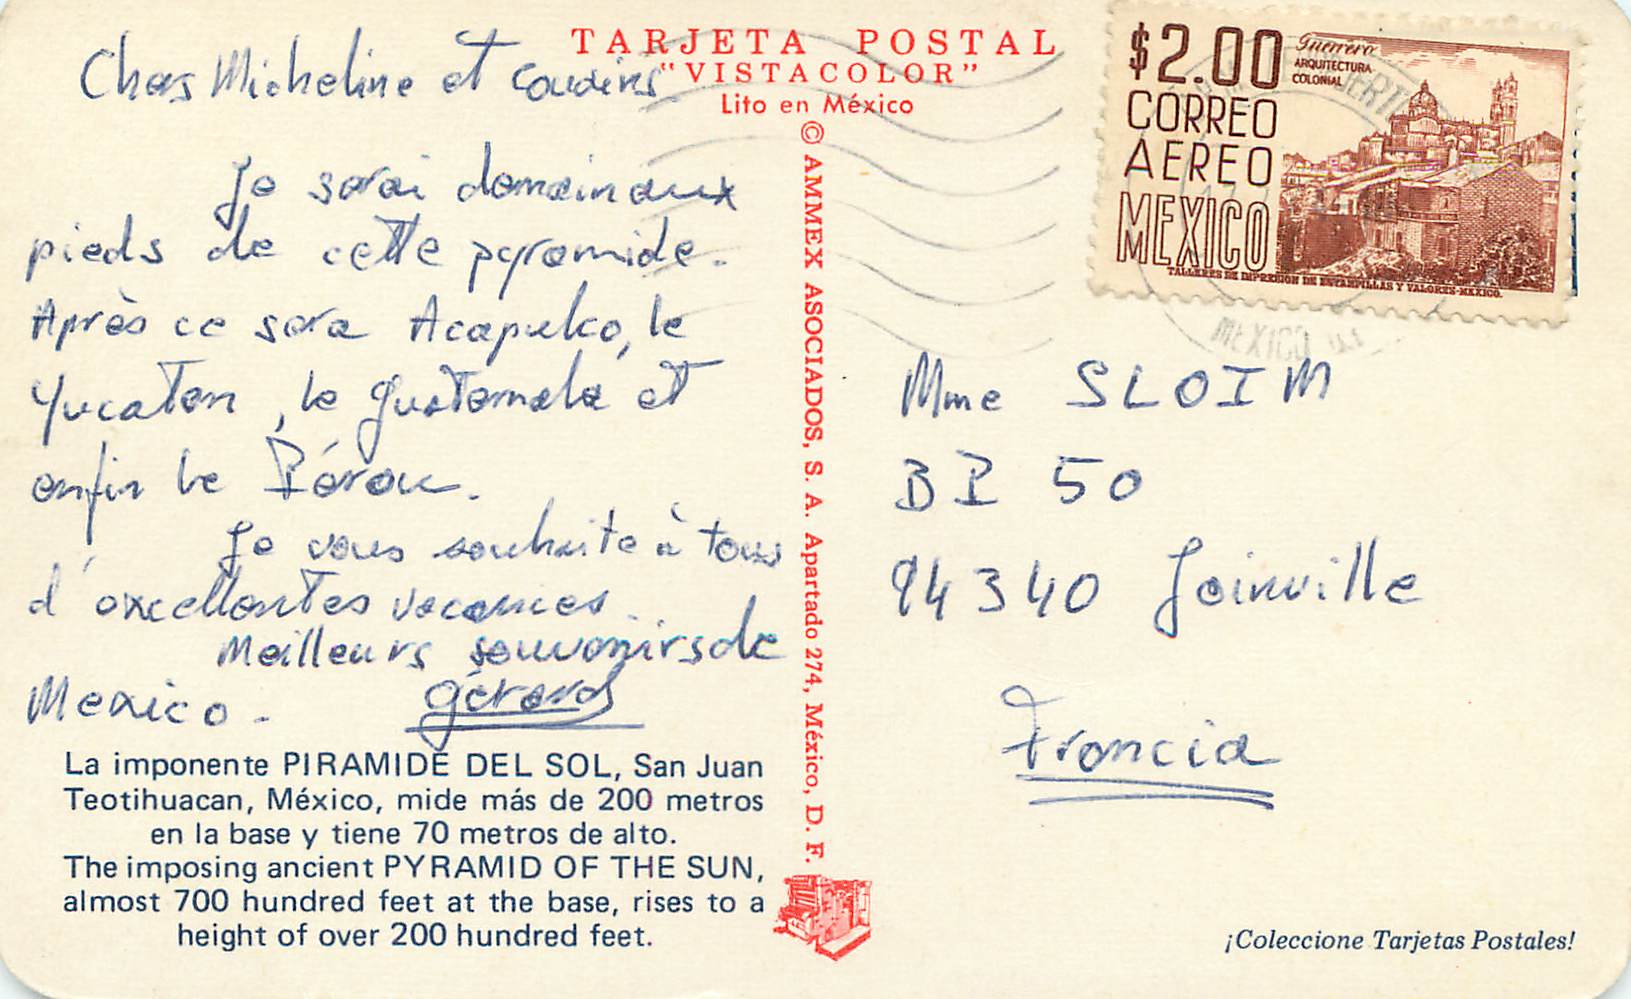 TARJETA POSTAL
"VISTACOLOR"
Lito en México
© AMMEX ASOCIADOS, S. A. Apartado 274, México, D. F.
Chers Micheline et cousins
Je serai demain aux
pieds de cette pyramide.
Après ce sera Acapulco, le
Yucatan, le Guatemala et
enfin le Pérou.
Je vous souhaite à tous
d'excellentes vacances.
Meilleurs souvenirs de
Mexico.
Gérard
La imponente PIRAMIDE DEL SOL, San Juan
Teotihuacan, México, mide más de 200 metros
en la base y tiene 70 metros de alto.
The imposing ancient PYRAMID OF THE SUN,
almost 700 hundred feet at the base, rises to a
height of over 200 hundred feet.
$2.00
CORREO
AEREO
MEXICO
Guerrero
ARQUITECTURA
COLONIAL
TALLERES DE IMPRESION DE ESTAMPILLAS Y VALORES-MEXICO.
MEXICO
Mme SLOIM
BP 50
94340 Joinville
Francia
¡Coleccione Tarjetas Postales!